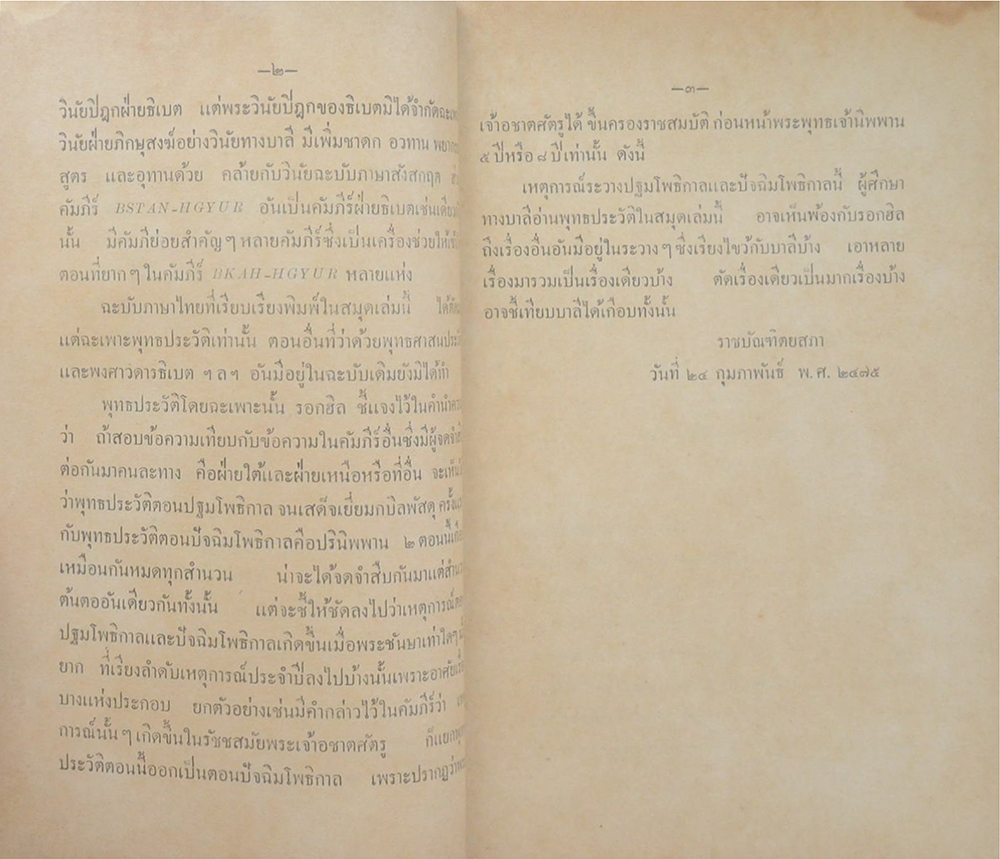 —๒—
วินัยปิฎกฝ่ายธิเบต แต่พระวินัยปิฎกของธิเบตมิได้จำกัดฉะเพาะ
วินัยฝ่ายภิกษุสงฆ์อย่างวินัยทางบาลี มีเพิ่มชาดก อวทาน
สูตร และอุทานด้วย คล้ายกับวินัยฉะบับภาษาสังสกฤต
คัมภีร์ BSTAN-HGYUR อันเป็นคัมภีร์ฝ่ายธิเบตเช่นเดียว
นั้น มีคัมภีย่อยสำคัญ ๆ หลายคัมภีร์ซึ่งเป็นเครื่องช่วยให้
ตอนที่ยาก ๆ ในคัมภีร์ BKAH-HGYUR หลายแห่ง
ฉะบับภาษาไทยที่เรียบเรียงพิมพ์ในสมุดเล่มนี้ ได้
แต่ฉะเพาะพุทธประวัติเท่านั้น ตอนอื่นที่ว่าด้วยพุทธศาสน
และพงศาวดารธิเบต ฯลฯ อันมีอยู่ในฉะบับเดิมยังมิได้ทำ
พุทธประวัติโดยฉะเพาะนั้น รอกฮิล ชี้แจงไว้ในคำนำ
ว่า ถ้าสอบข้อความเทียบกับข้อความในคัมภีร์อื่นซึ่งมีผู้จดจำ
ต่อกันมาคนละทาง คือฝ่ายใต้และฝ่ายเหนือหรือที่อื่น จะเห็น
ว่าพุทธประวัติตอนปฐมโพธิกาล จนเสด็จเยี่ยมกบิลพัสดุ
กับพุทธประวัติตอนปัจฉิมโพธิกาลคือปรินิพพาน ๒ ตอนนี้
เหมือนกันหมดทุกสำนวน น่าจะได้จดจำสืบกันมาแต่
ต้นตออันเดียวกันทั้งนั้น แต่จะชี้ให้ชัดลงไปว่าเหตุการณ์
ปฐมโพธิกาลและปัจฉิมโพธิกาลเกิดขึ้นเมื่อพระชันษาเท่าใดๆ
ยาก ที่เรียงลำดับเหตุการณ์ประจำปีลงไปบ้างนั้นเพราะอาศัย
บางแห่งประกอบ ยกตัวอย่างเช่นมีคำกล่าวไว้ในคัมภีร์ว่า
การณ์นั้น ๆ เกิดขึ้นในรัชชสมัยพระเจ้าอชาตศัตรู ก็แยก
ประวัติตอนนี้ออกเป็นตอนปัจฉิมโพธิกาล เพราะปรากฏว่า
—๓—
เจ้าอชาตศัตรูได้ ขึ้นครองราชสมบัติ ก่อนหน้าพระพุทธเจ้านิพพาน
๕ ปีหรือ ๘ ปีเท่านั้น ดังนี้
เหตุการณ์ระวางปฐมโพธิกาลและปัจฉิมโพธิกาลนี้ ผู้ศึกษา
ทางบาลีอ่านพุทธประวัติในสมุดเล่มนี้ อาจเห็นพ้องกับรอกฮิล
ถึงเรื่องอื่นอันมีอยู่ในระวาง ๆ ซึ่งเรียงไขว้กับบาลีบ้าง เอาหลาย
เรื่องมารวมเป็นเรื่องเดียวบ้าง ตัดเรื่องเดียวเป็นมากเรื่องบ้าง
อาจชี้เทียบบาลีได้เกือบทั้งนั้น
ราชบัณฑิตยสภา
วันที่ ๒๔ กุมภาพันธ์ พ.ศ. ๒๔๗๕